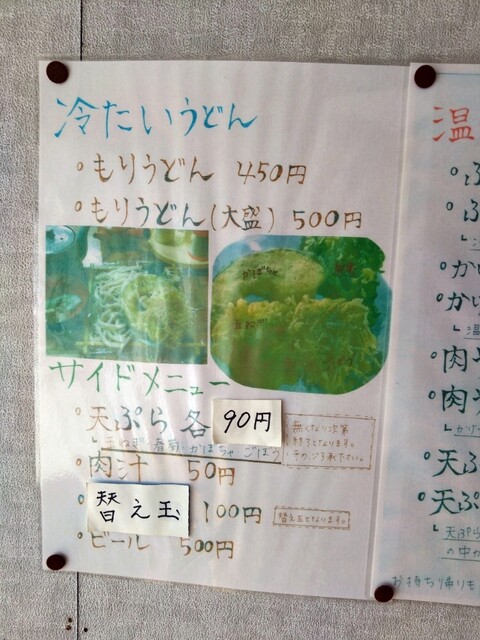 冷たいうどん
○もりうどん 450円
○もりうどん(大盛) 500円
かぼちゃ
サイドメニュー
○天ぷら各 90円
└玉ねぎ・春菊・かぼちゃ・ごぼう
無くなり次第
終了となります。
予めご了承下さい。
○肉汁 50円
替え玉 100円
替え玉となります。
○ビール 500円
温
○か
○か
└温
○肉
○肉
└かけ
○天ぷ
○天ぷ
└天ぷら
の中か
お持ち帰りも